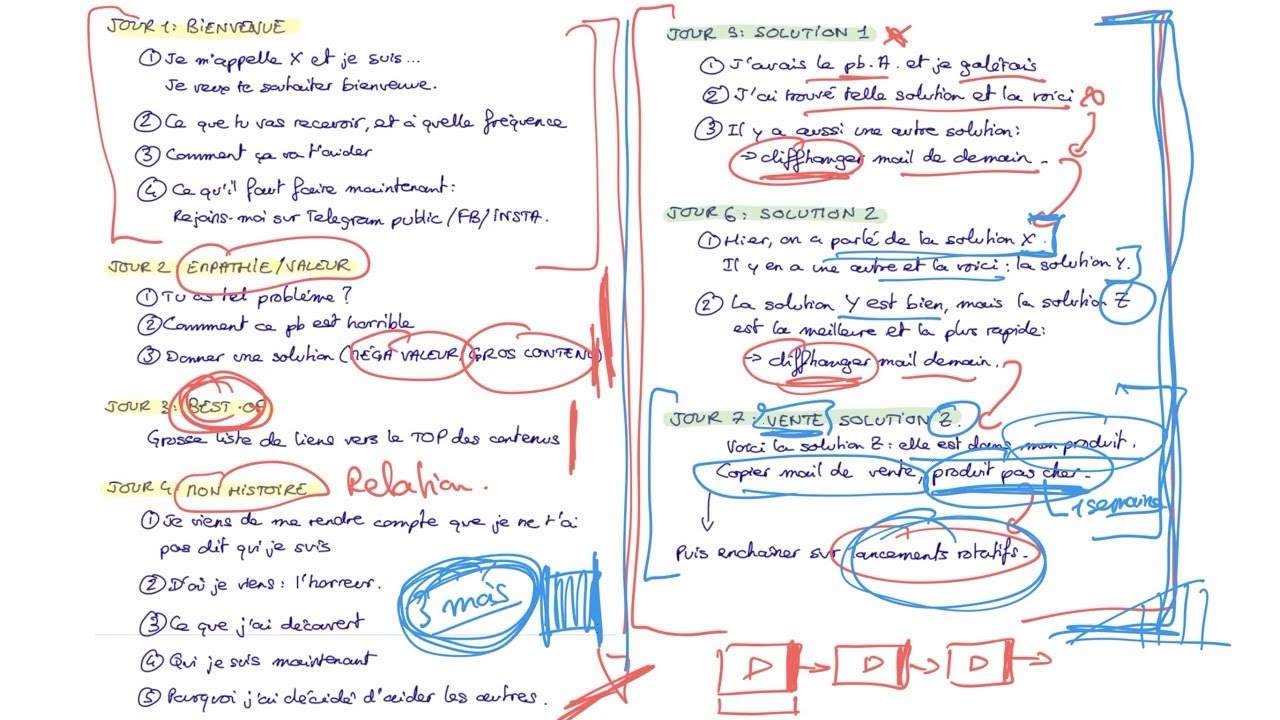 JOUR 1: BIENVENUE
① Je m'appelle X et je suis...
Je veux te souhaiter bienvenue.
② Ce que tu vas recevoir, et à quelle fréquence
③ Comment ça va t'aider
④ Ce qu'il faut faire maintenant:
Rejoins-moi sur Telegram public/FB/INSTA.
JOUR 2 EMPATHIE/VALEUR
① Tu as tel problème?
② Comment ce pb est horrible
③ Donner une solution (MÉGA VALEUR, GROS CONTENU)
JOUR 3: BEST-OF
Grosse liste de liens vers le TOP des contenus
JOUR 4: MON HISTOIRE Relation.
① Je viens de me rendre compte que je ne t'ai
pas dit qui je suis
② D'où je viens: l'horreur.
3 mois
③ Ce que j'ai découvert
④ Qui je suis maintenant
⑤ Pourquoi j'ai décidé d'aider les autres.
JOUR 5: SOLUTION 1
① J'avais le pb. A. et je galérais
② J'ai trouvé telle solution et la voici
③ Il y a aussi une autre solution:
→ cliffhanger mail de demain.
JOUR 6: SOLUTION 2
① Hier, on a parlé de la solution X.
Il y en a une autre et la voici: la solution Y.
② La solution Y est bien, mais la solution Z
est la meilleure et la plus rapide:
→ cliffhanger mail demain.
JOUR 7: VENTE SOLUTION Z.
Voici la solution Z: elle est dans mon produit.
Copier mail de vente, produit pas cher.
1 semaine
Puis enchaîner sur lancements rotatifs.